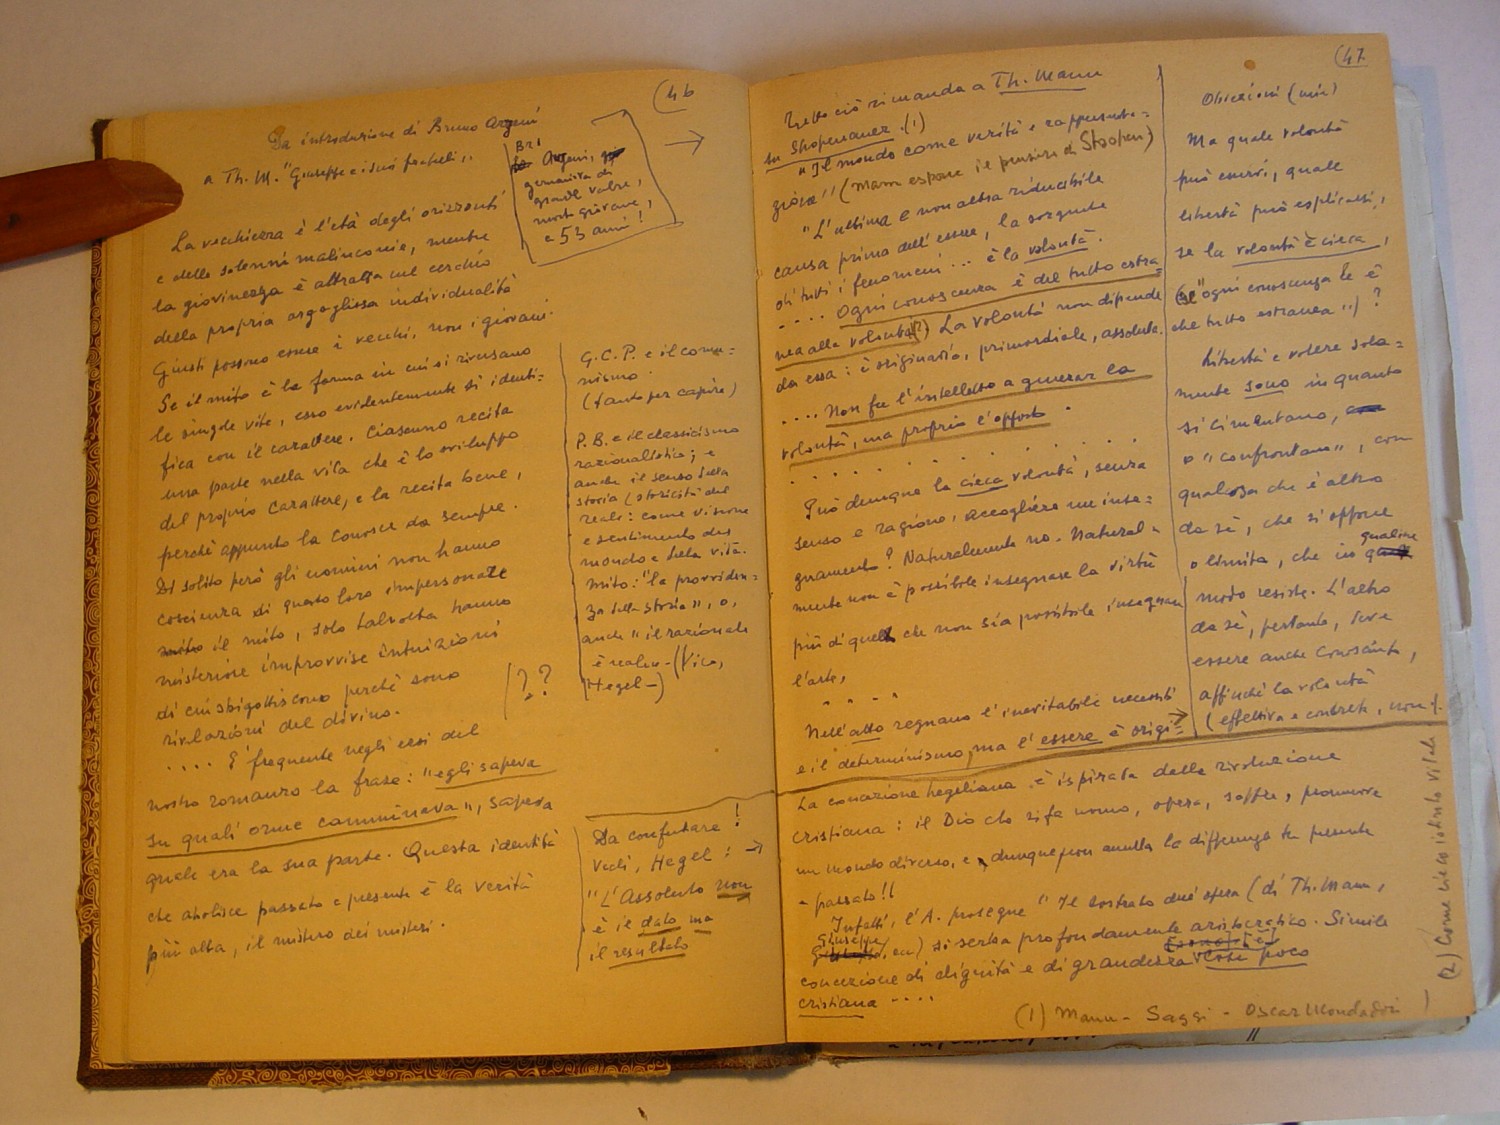 (46
Da introduzione di Bruno Arzeni
a Th. M. "Giuseppe e i suoi fratelli".
BRI
Arzeni,
germanista di
grande valore,
morto giovane,
a 53 anni!
La vecchiezza è l'età degli orizzonti
e delle solenni malinconie, mentre
la giovinezza è attratta nel cerchio
della propria orgogliosa individualità
Giusti possono essere i vecchi, non i giovani.
Se il mito è la forma in cui si riversano
le singole vite, esso evidentemente si identi=
fica con il carattere. Ciascuno recita
una parte nella vita che è lo sviluppo
del proprio carattere, e la recita bene,
perchè appunto la conosce da sempre.
Di solito però gli uomini non hanno
coscienza di questo loro impersonare
mito il mito, solo talvolta hanno
misteriose improvvise intuizioni
di cui sbigottiscono perchè sono
rivelazioni del divino.
?. ?
.... E' frequente negli eroi del
nostro romanzo la frase: "egli sapeva
su quali orme camminava", sapeva
quale era la sua parte. Questa identità
che abolisce passato e presente è la verità
più alta, il mistero dei misteri.
G.C.P. e il comu=
nismo.
(tanto per capire)
P.B. e il classicismo
razionalistico; e
anche il senso della
storia (storicità del
reale: come visione
e sentimento del
mondo e della vita.
mito: "la provviden=
za della storia", o,
anche "il razionale
è reale - (Vico,
Hegel -)
Da confutare!
Vedi, Hegel: →
"L'Assoluto non
è il dato ma
il resultato
(47
Tutto ciò rimanda a Th. Mann
su Shopenauer.(1)
"Il mondo come verità e rappresenta=
zione" (Mann espone il pensiero di Shopen)
"L'ultima e non altra riducibile
causa prima dell'essere, la sorgente
di tutti i fenomeni ... è la volontà.
.... Ogni conoscenza è del tutto estra=
nea alla volontà(2) La volontà non dipende
da essa: è originaria, primordiale, assoluta.
.... Non fu l'intelletto a generar la
volontà, ma proprio l'opposto.
. . . . . . . . . .
Può dunque la cieca volontà, senza
senso e ragione, accogliere un inse=
gnamento? Naturalmente no. Natural-
mente non è possibile insegnare la virtù
più di quel che non sia possibile insegnare
l'arte,
. . .
Nell'atto regnano l'inevitabile necessità
e il determinismo, ma l'essere è origi=
Obiezioni (mie)
Ma quale volontà
può esservi, quale
libertà può esplicarsi,
se la volontà è cieca,
(se "ogni conoscenza le è
del tutto estranea") ?
Libertà e volere sola=
mente sono in quanto
si cimentano,
o "confrontano", con
qualcosa che è altro
da sè, che si oppone
o limita, che in qualche
modo resiste. L'altro
da sè, pertanto, deve
essere anche conosciuto,
affinché la volontà
(effettiva e concreta, non
La concezione hegeliana è ispirata dalla rivoluzione
cristiana: il Dio che si fa uomo, opera, soffre, promuove
un mondo diverso, e dunque non annulla la differenza tra presente
- passato!!
Infatti, l'A. prosegue "Il sostrato dell'opera (di Th. Mann,
Giuseppe, ecc) si serba profondamente aristocratico. Simile
concezione di dignità e di grandezza è cosa poco
cristiana ....
(1) Mann - Saggi - Oscar Mondadori
(2) Come cieco istinto vitale